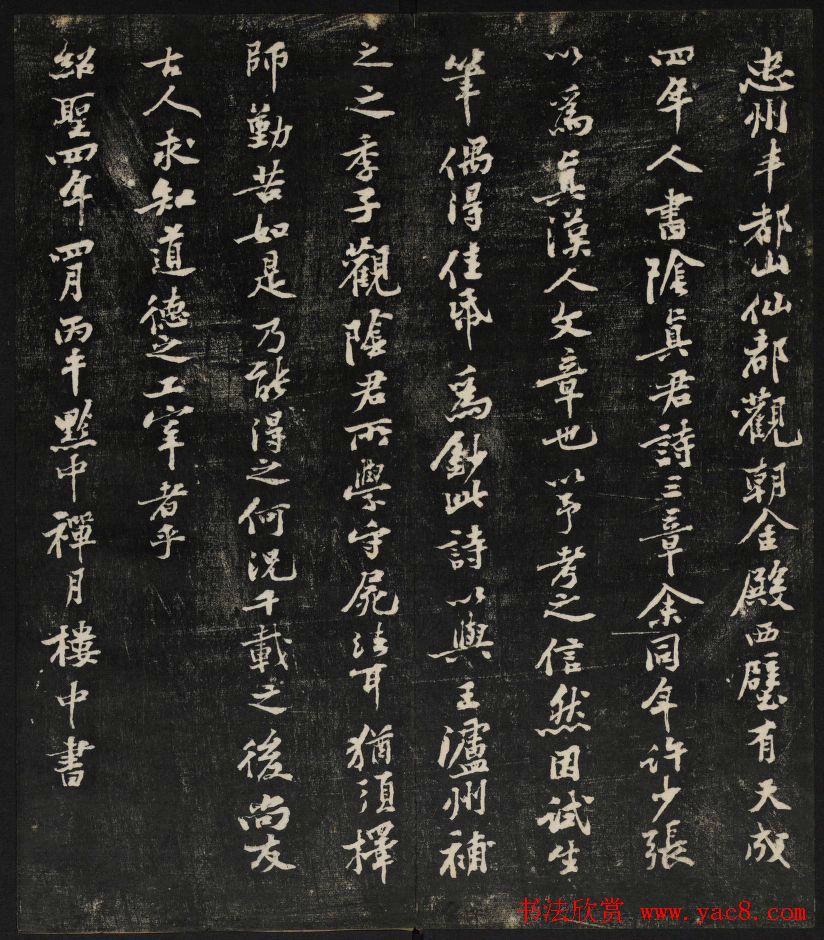 忠州丰都山仙都觀朝金殿西壁有天成
四年人書陰真君詩三章余同年许少張
以爲真漢人文章也以予考之信然因試生
筆偶得佳紙爲鈔此詩以與王瀘州補
之之季子觀陰君所學守屍法耳猶須擇
師勤苦如是乃能得之何況千載之後尚友
古人求知道德之工宰者乎
紹聖四年四月丙午黔中禪月樓中書
书法欣赏 www.yac8.com